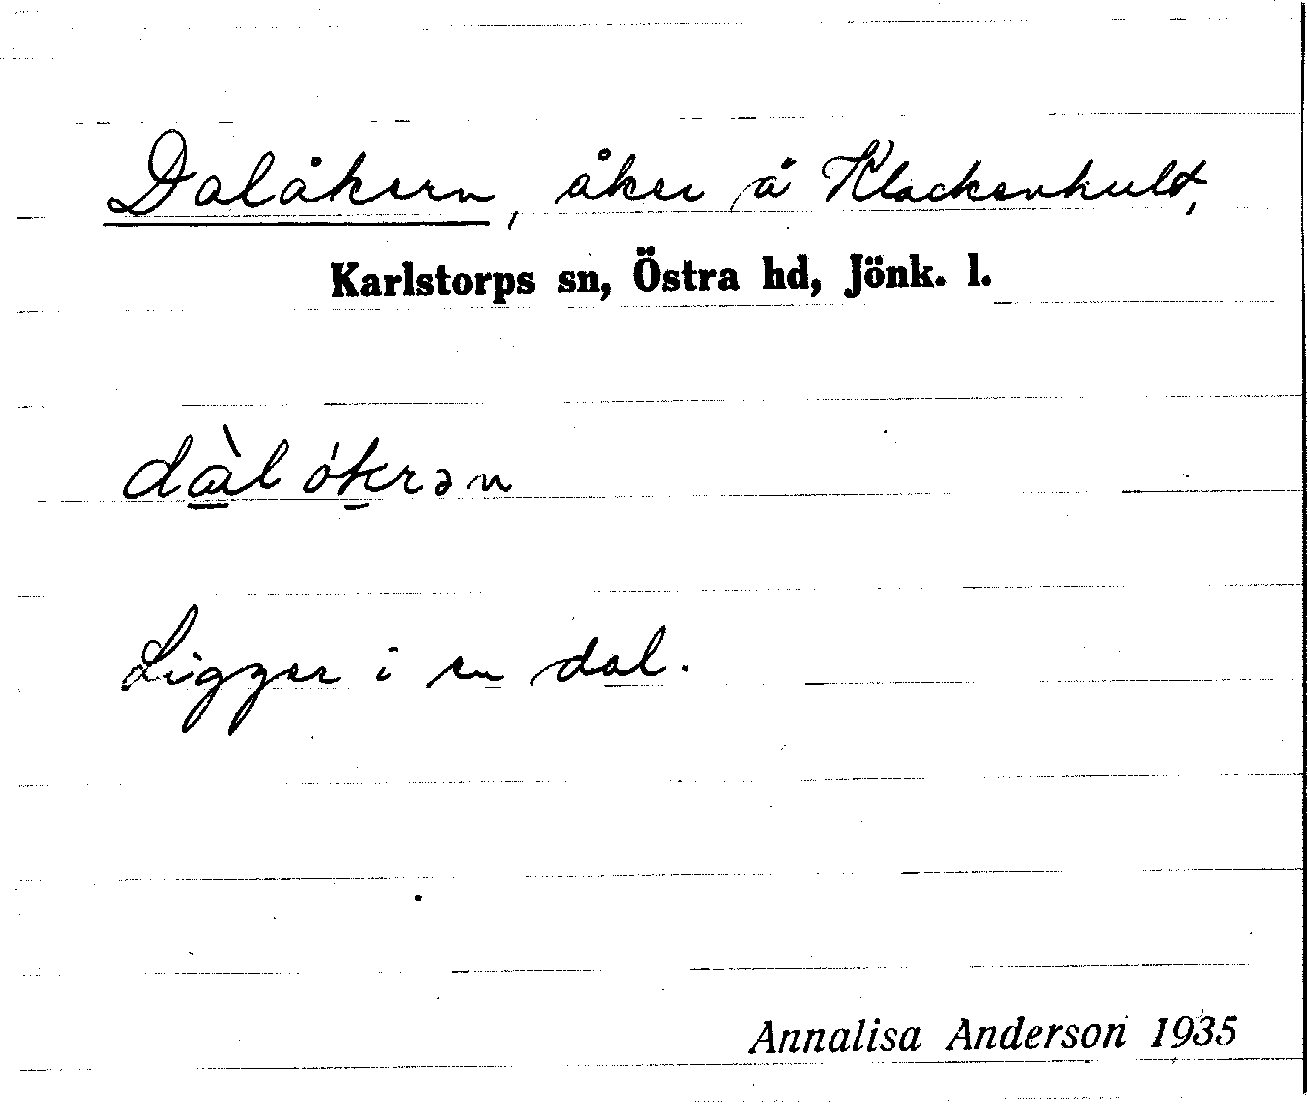 Dalåkern, åker å Klackenhult,
Karlstorps sn, Östra hd, Jönk. l.
dàl ókrən
Ligger i en dal.
Annalisa Anderson 1935